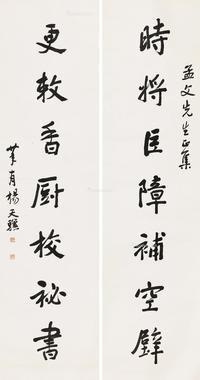 時將巨障補空壁
更敕香厨校祕書
孟文先生正集
楊天驥